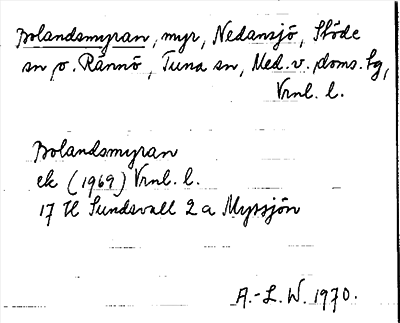 Bolandsmyran, myr, Nedansjö, Stöde
sn o. Rännö, Tuna sn, Med. v. doms. tg,
Vrnl. l.
Bolandsmyran
ek (1969) Vrnl. l.
17 H Sundsvall 2 a Myssjön
A.-L. W. 1970.